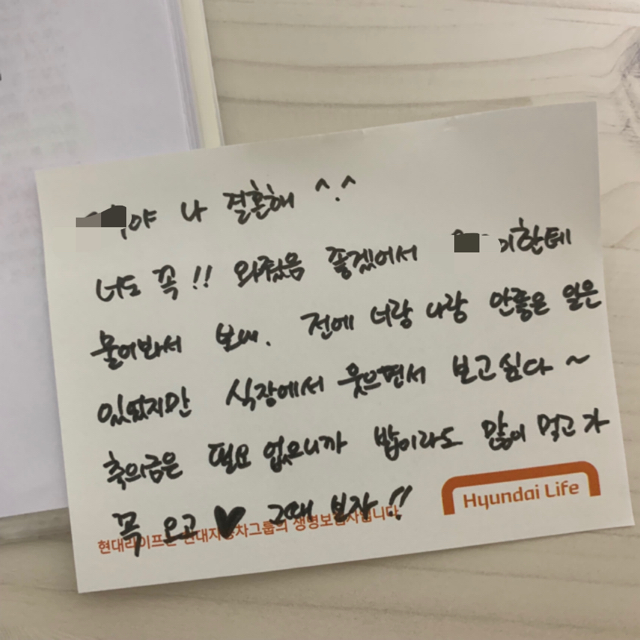 야 나 결혼해 ^.^
너도 꼭!! 와줬음 좋겠어서 한테
물어봐서 보내. 전에 너랑 나랑 안좋은 일은
있었지만 식장에서 웃으면서 보고싶다~
축의금은 필요 없으니까 밥이라도 많이 먹고 가
꼭 오고 ♥ 그때 보자!!
Hyundai Life
현대라이프는 현대자동차그룹의 생명보험사입니다